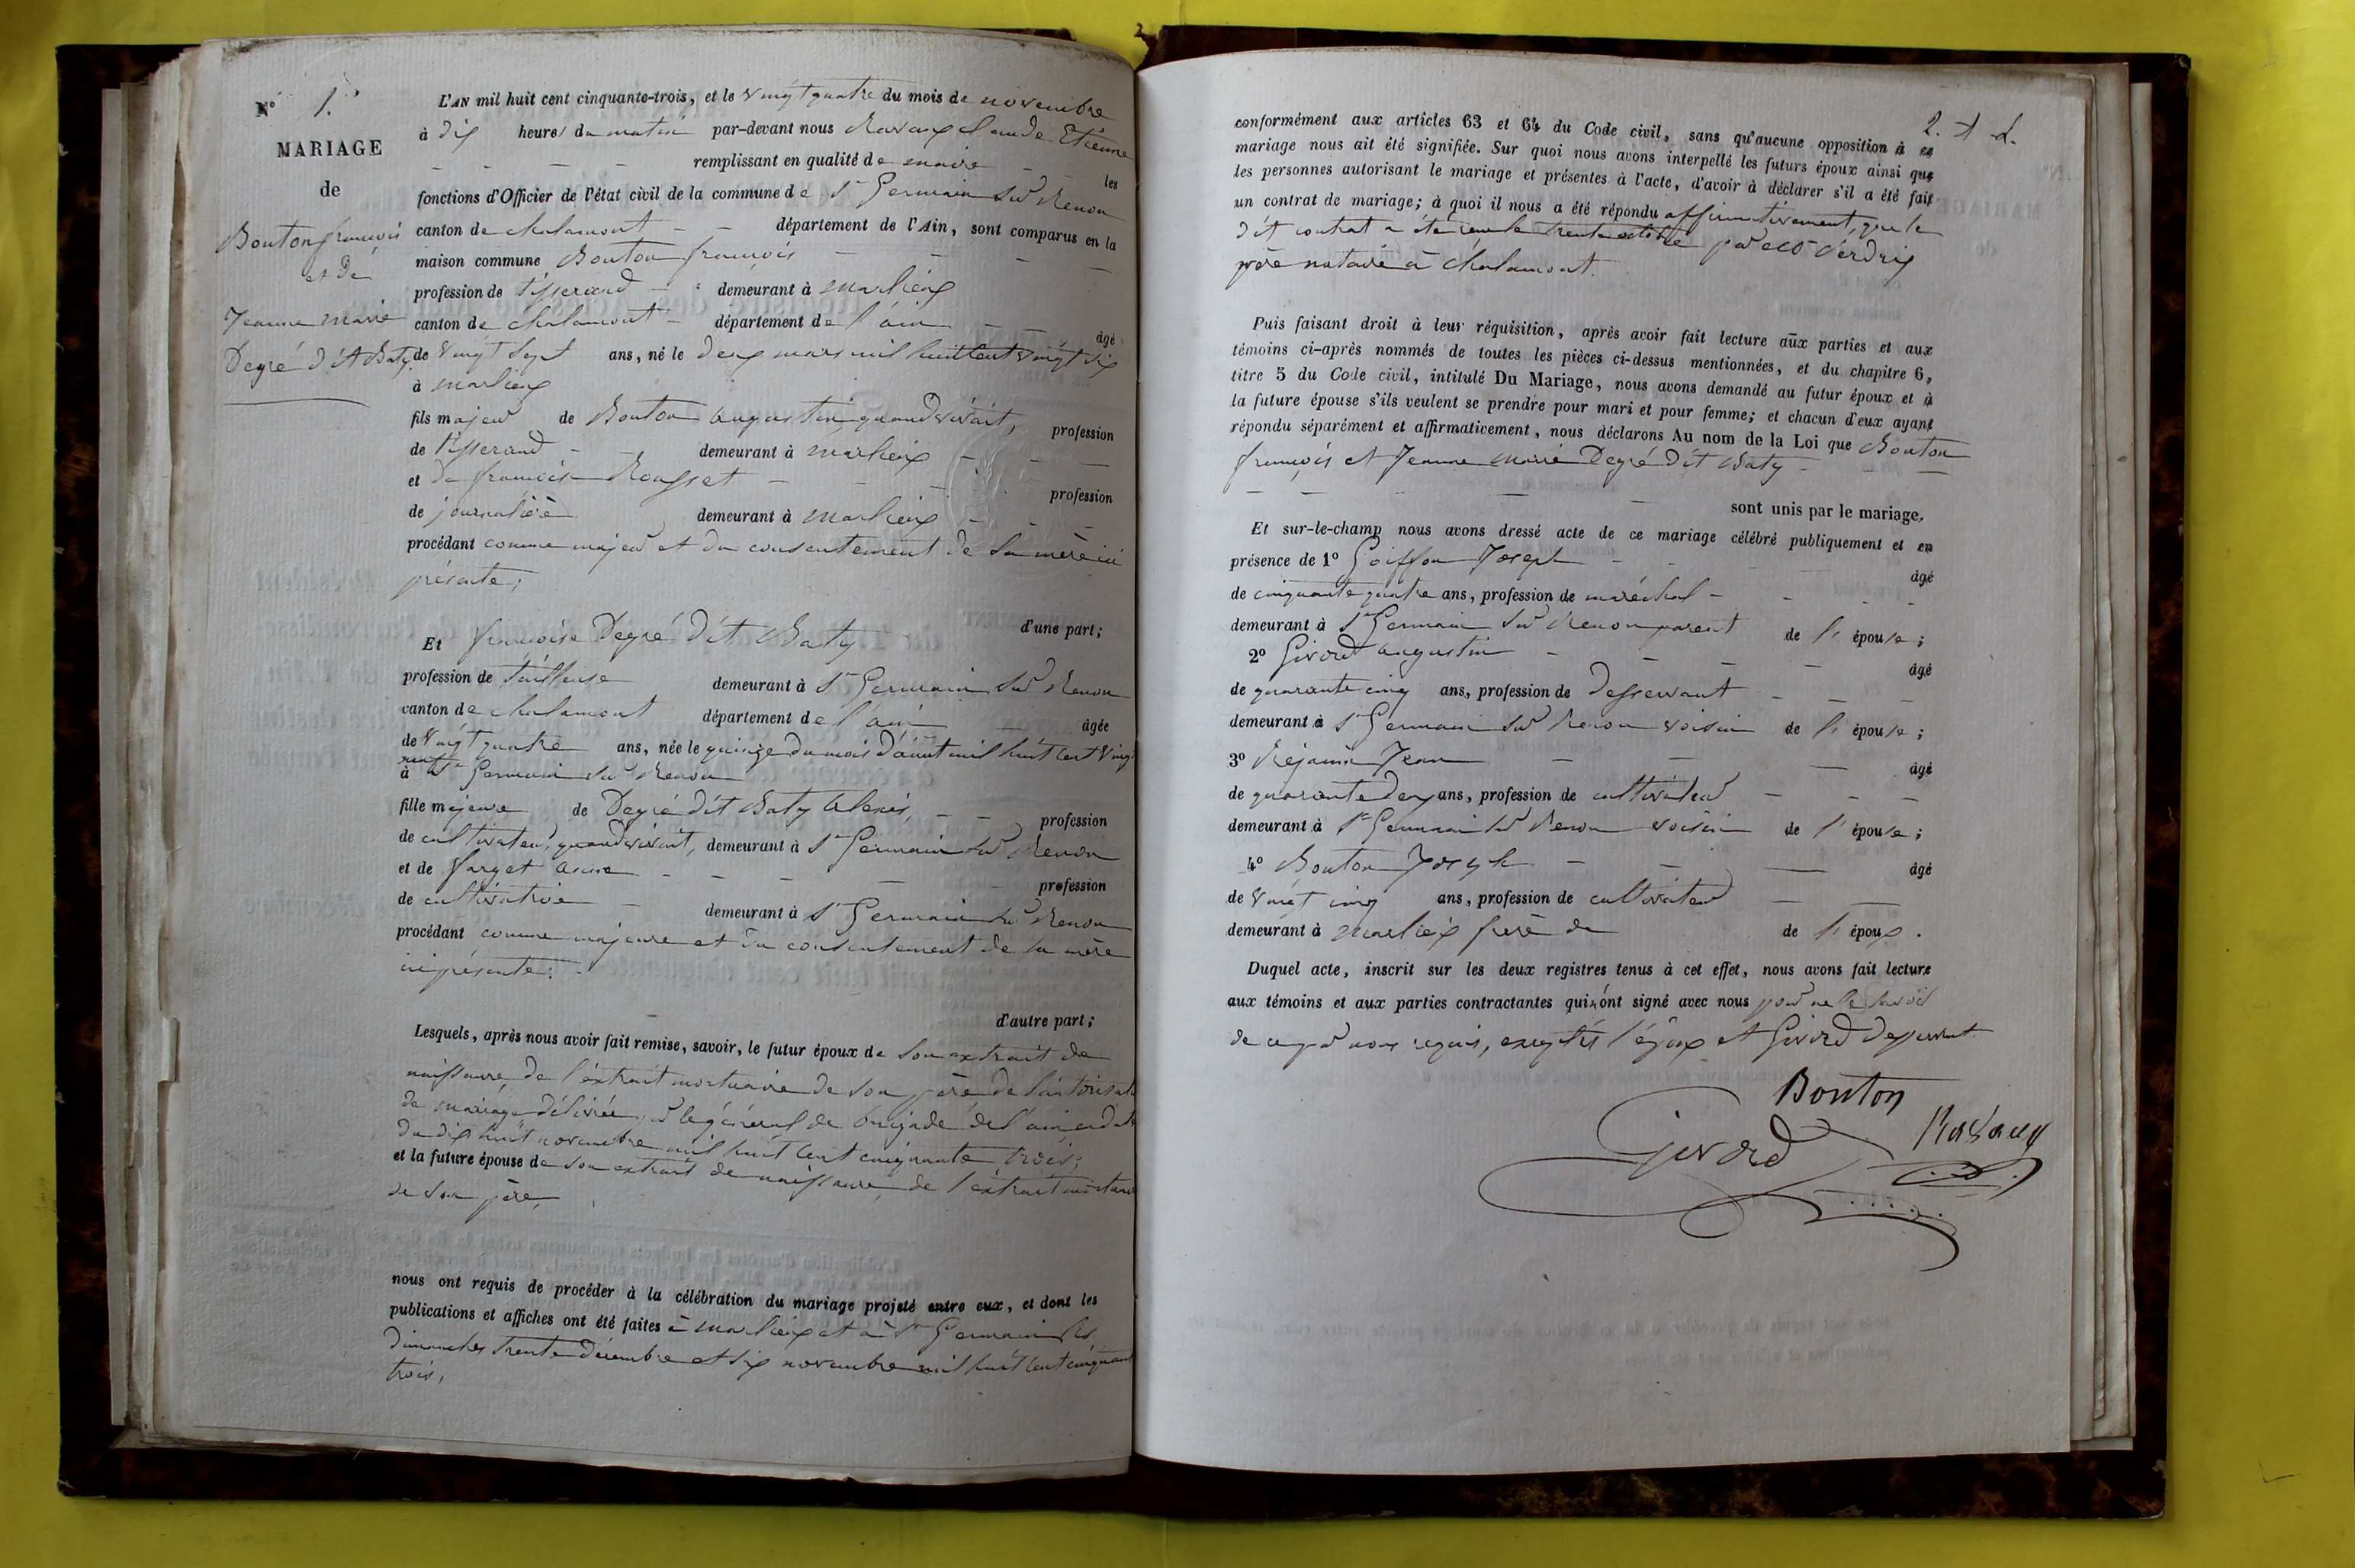 N° 1.
MARIAGE
de
Bouton françois
et de
Jeanne marie
Degré dit Baty.
L'AN mil huit cent cinquante-trois, et le vingt quatre du mois de novembre
à dix heures du matin par-devant nous Ravaux Claude Etienne
remplissant en qualité de maire les
fonctions d'Officier de l'état civil de la commune de St Germain Sur Renon
canton de chalamont département de l'Ain, sont comparus en la
maison commune Bouton françois
profession de tisserand demeurant à marlieux
canton de chalamont département de l'ain âgé
de vingt sept ans, né le deux mars mil huit cent vingt six
à marlieux
fils majeur de Bouton augustin quand vivait, profession
de tisserand demeurant à marlieux
et de françoise Rousset profession
de journalière demeurant à marlieux
procédant comme majeur et du consentement de sa mère ici
présente;
d'une part;
Et françoise Degré dit Baty
profession de tailleuse demeurant à St Germain sur Renon
canton de chalamont département de l'ain âgée
de vingt quatre ans, née le quinze du mois d'aout mil huit cent vingt
neuf
à St Germain sur Renon
fille majeure de Degré dit Baty alexis, profession
de cultivateur, quand vivait, demeurant à St Germain sur Renon
et de farget anne profession
de cultivatrice demeurant à St Germain sur Renon
procédant comme majeure et du consentement de sa mère
ici présente;
d'autre part;
Lesquels, après nous avoir fait remise, savoir, le futur époux de son extrait de
naissance, de l'extrait mortuaire de son père, de l'autorisat
de mariage délivrée par le général de brigade de l'ain en dat
du dix huit novembre mil huit cent cinquante trois;
et la future épouse de son extrait de naissance, de l'extrait mortuaire
de son père,
nous ont requis de procéder à la célébration du mariage projeté entre eux, et dont les
publications et affiches ont été faites à marlieux et à St Germain les
dimanches trente décembre et six novembre mil huit cent cinquant
trois,
2.
conformément aux articles 63 et 64 du Code civil, sans qu'aucune opposition à ce
mariage nous ait été signifiée. Sur quoi nous avons interpellé les futurs époux ainsi que
les personnes autorisant le mariage et présentes à l'acte, d'avoir à déclarer s'il a été fait
un contrat de mariage; à quoi il nous a été répondu affirmativement, que le
dit contrat a été le trente octobre par Verdrix
père notaire à Chalamont.
Puis faisant droit à leur réquisition, après avoir fait lecture aux parties et aux
témoins ci-après nommés de toutes les pièces ci-dessus mentionnées, et du chapitre 6,
titre 5 du Code civil, intitulé Du Mariage, nous avons demandé au futur époux et à
la future épouse s'ils veulent se prendre pour mari et pour femme; et chacun d'eux ayant
répondu séparément et affirmativement, nous déclarons Au nom de la Loi que Bouton
françois et Jeanne marie Degré dit Baty
sont unis par le mariage,
Et sur-le-champ nous avons dressé acte de ce mariage célébré publiquement et en
présence de 1° Goiffon Joseph âgé
de cinquante quatre ans, profession de maréchal
demeurant à St Germain sur Renon parent de l'épouse;
2° Girord augustin âgé
de quarante cinq ans, profession de desservant
demeurant à St Germain sur Renon voisin de l'épouse;
3° Réjanin Jean âgé
de quarante deux ans, profession de cultivateur
demeurant à St Germain sur Renon voisin de l'épouse;
4° Bouton Joseph âgé
de vingt cinq ans, profession de cultivateur
demeurant à marlieux frère de de l'époux.
Duquel acte, inscrit sur les deux registres tenus à cet effet, nous avons fait lecture
aux témoins et aux parties contractantes qui n'ont signé avec nous pour ne le savoir
de ce par nous requis, exceptés l'époux et Girord desservant.
Bouton
Girord
Ravaux